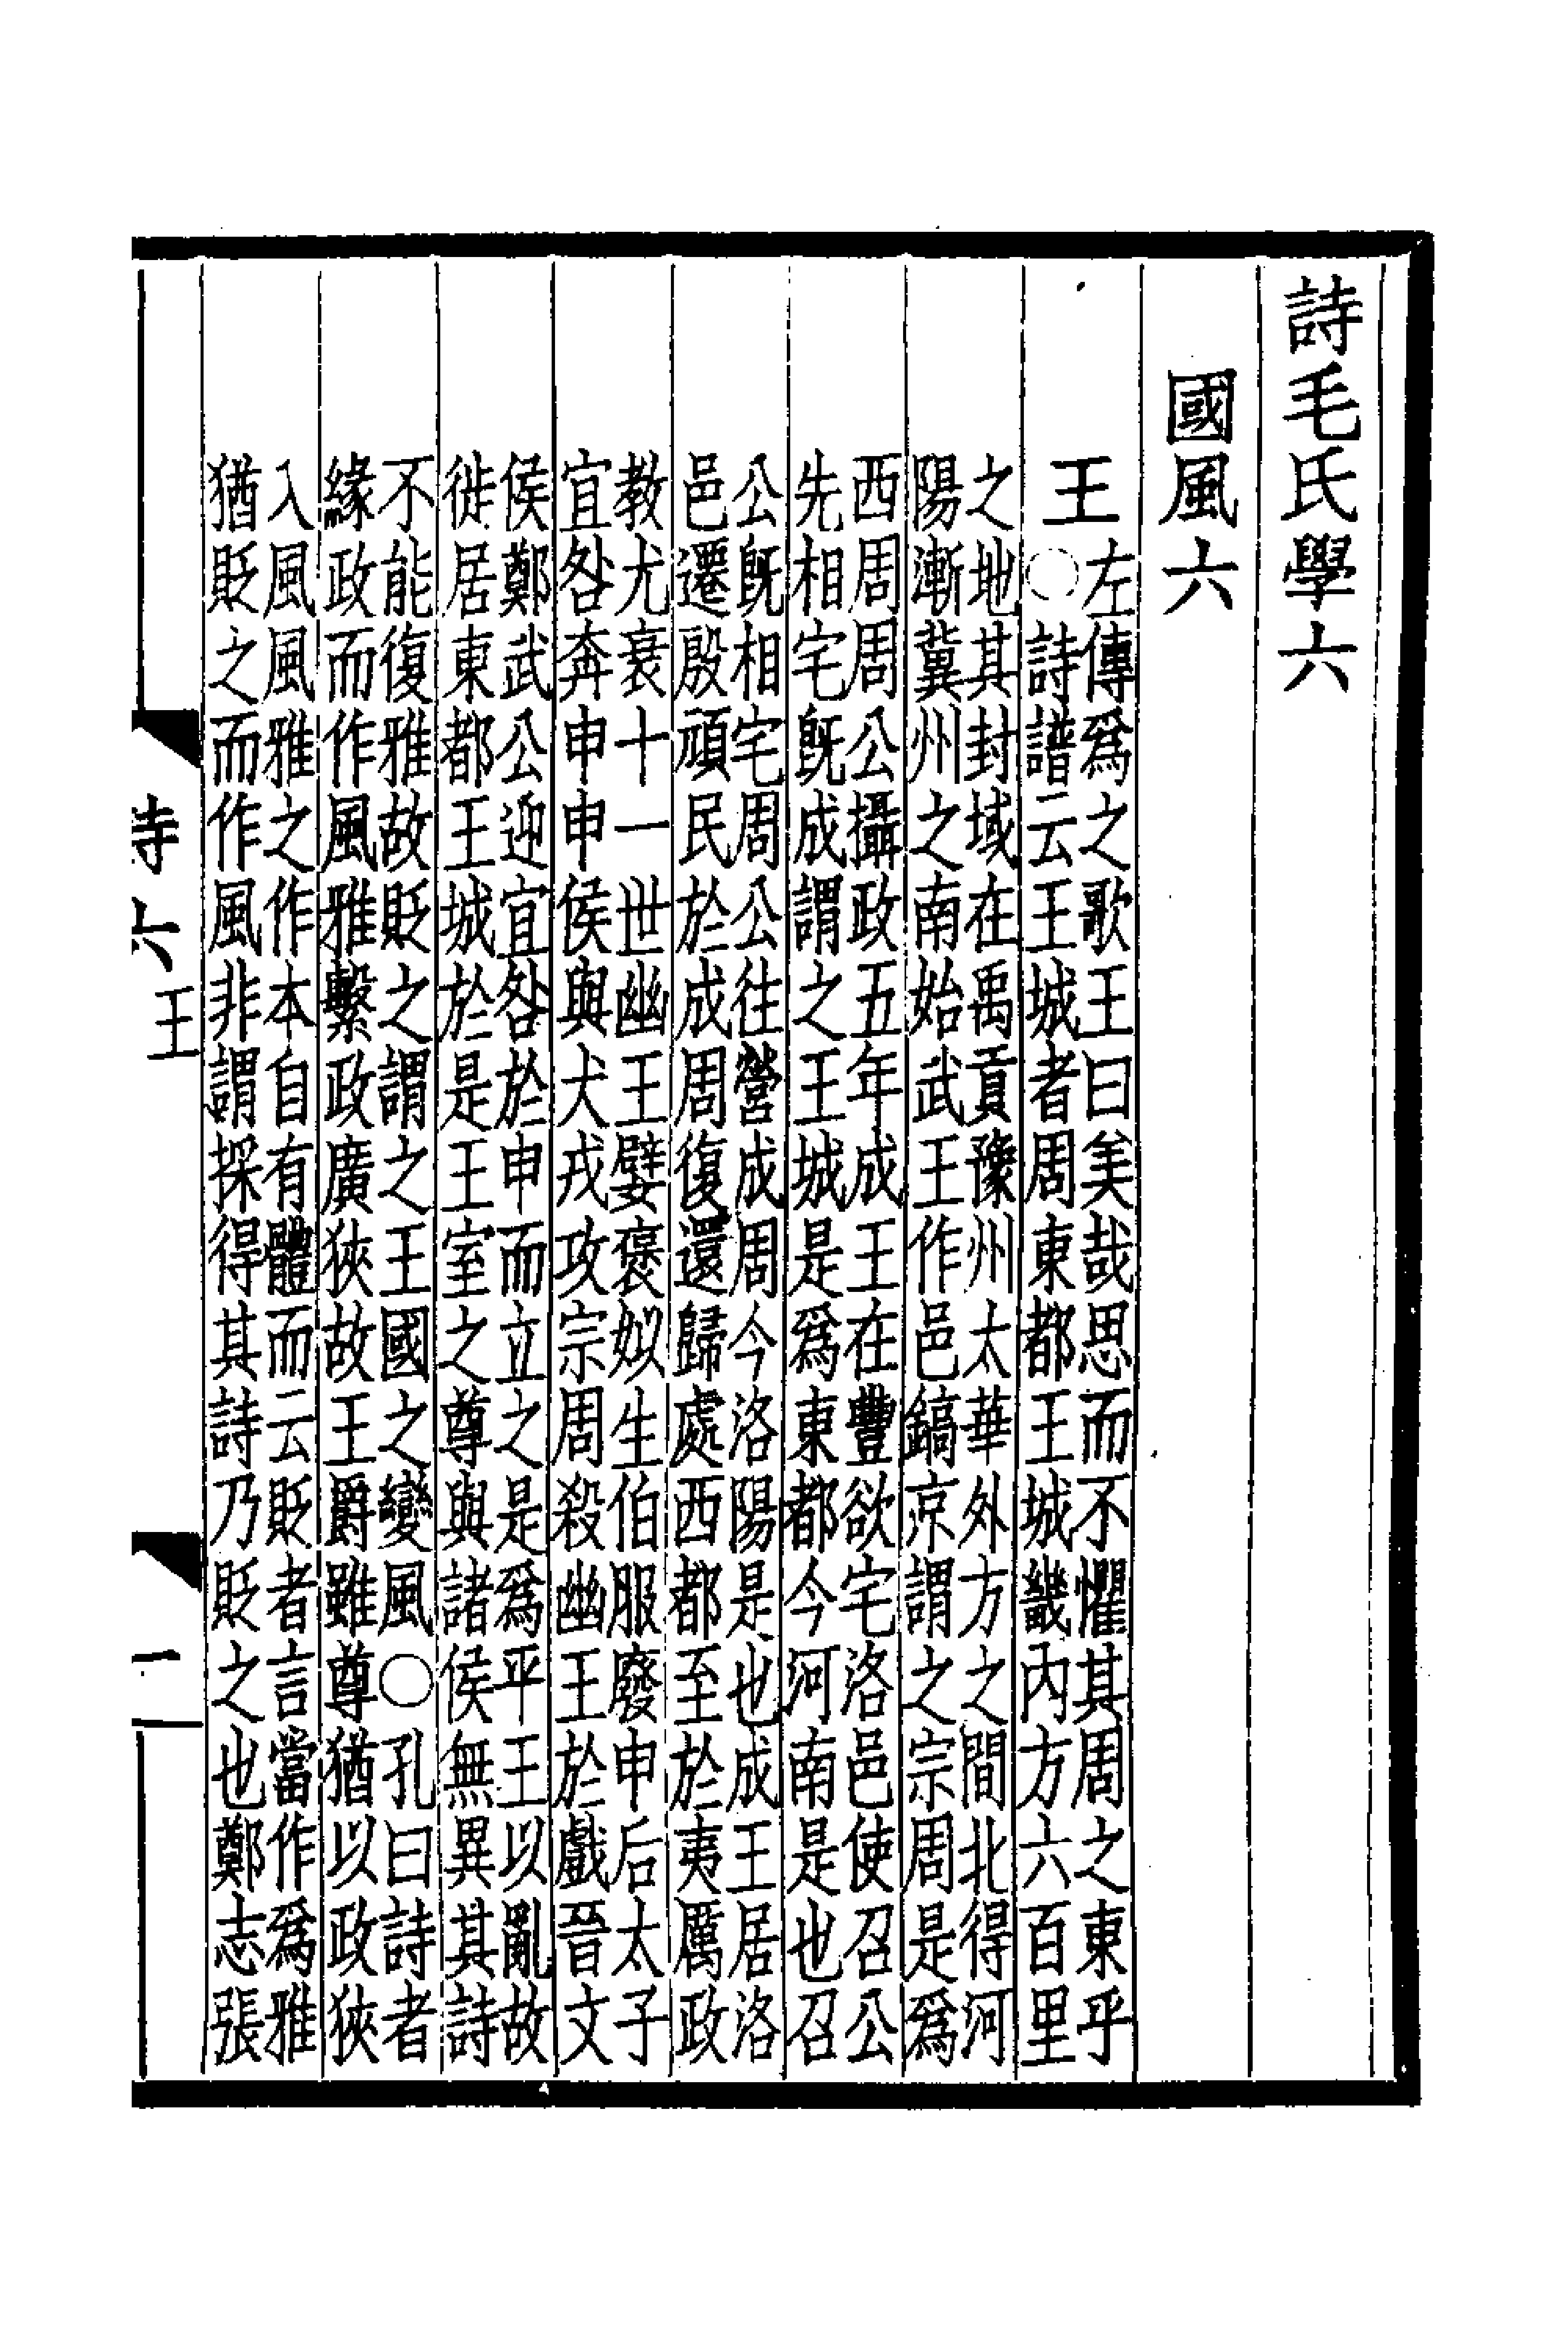 詩毛氏學六
國風六
王
左傳爲之歌王曰美哉思而不懼其周之東乎
○詩譜云王城者周東都王城畿內方六百里
之地其封域在禹貢豫州太華外方之間北得河
陽漸冀州之南始武王作邑鎬京謂之宗周是爲
西周周公攝政五年成王在豐欲宅洛邑使召公
先相宅旣成謂之王城是爲東都今河南是也召
公旣相宅周公往營成周今洛陽是也成王居洛
邑遷殷頑民於成周復還歸處西都至於夷厲政
教尤衰十一世幽王嬖褒姒生伯服廢申后太子
宜咎奔申申侯與犬戎攻宗周殺幽王於戲晉文
侯鄭武公迎宜咎於申而立之是爲平王以亂故
徙居東都王城於是王室之尊與諸侯無異其詩
不能復雅故貶之謂之王國之變風○孔曰詩者
緣政而作風雅繫政廣狹故王爵雖尊猶以政狹
入風風雅之作本自有體而云貶者言當作爲雅
猶貶之而作風非謂採得其詩乃貶之也鄭志張
詩六
王
一